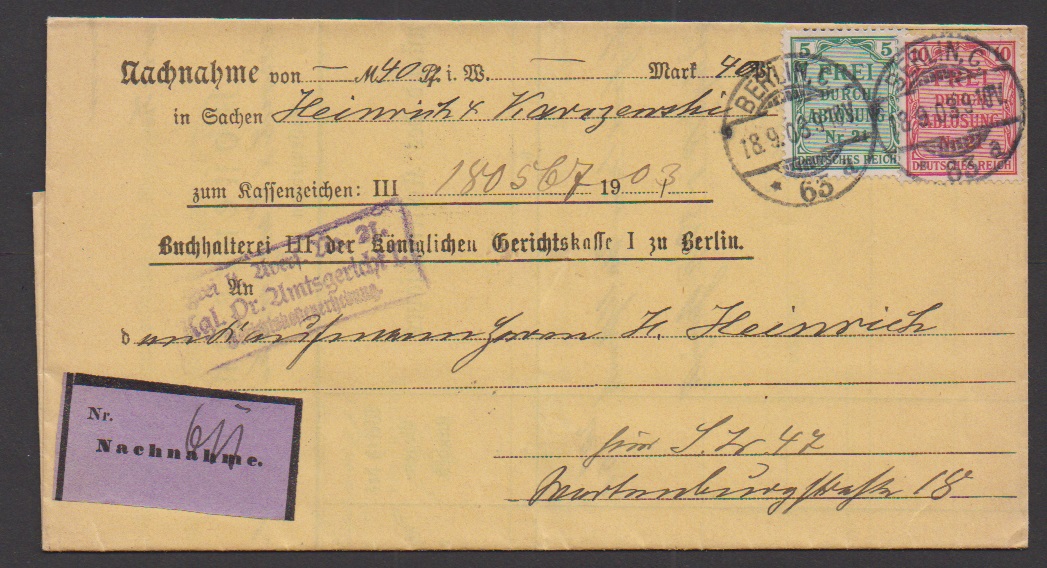 Nachnahme von — M 40 Pf. i. W. — Mark 40 Pf
in Sachen Heinrich & Karozewski
zum Kassenzeichen: III 180567 1903
Buchhalterei III der Königlichen Gerichtskasse I zu Berlin.
An
den Kaufmann Herrn H. Heinrich
hier S. W. 47
Wartenburgstraße 18
Nr. 611
Nachnahme.
5 5
FREI
DURCH
ABLÖSUNG
Nr. 21
DEUTSCHES REICH
10 10
FREI
DURCH
ABLÖSUNG
Nr. 21
DEUTSCHES REICH
BERLIN, C.
18.9.03
* 63 a
BERLIN, C.
18.9.03
63 a
Frei lt. Avers. Nr. 21.
Kgl. Pr. Amtsgericht I.